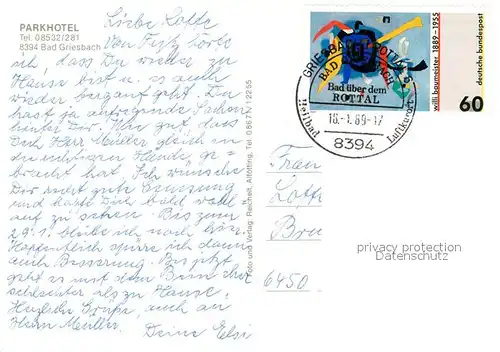 PARKHOTEL
Tel. 08532/281
8394 Bad Griesbach
Liebe Lotte
Von Fritz hörte
ich dass Du wieder zu
Hause bist u. es auch
wieder bergauf geht. Du
hast ja aufregende Sachen
hinter Dir. Nur gut, dass
Dich Herr Müller gleich in
die richtigen Hände ge-
bracht hat. Ich wünsche
Dir recht gute Genesung
und hoffe Dich bald wohl
auf zu sehen. Bis zum
29.1. bleibe ich noch hier.
Hoffentlich spüre ich dann
auch Besserung. Bis jetzt
geht es mit dem
schlechter als zu Hause.
Herzliche Grüße, auch an
Herrn Müller.
Deine Elsi
Foto und Verlag: Reichelt, Altötting, Tel. 08671/12255
willi baumeister 1889-1955
deutsche bundespost
60
GRIESBACH
BAD
Bad über dem
ROTTAL
Heilbad
Luftkurort
18.-1.89-17
8394
Frau
Lotte
Bru
6450
privacy protection
VERONIKADI.COM